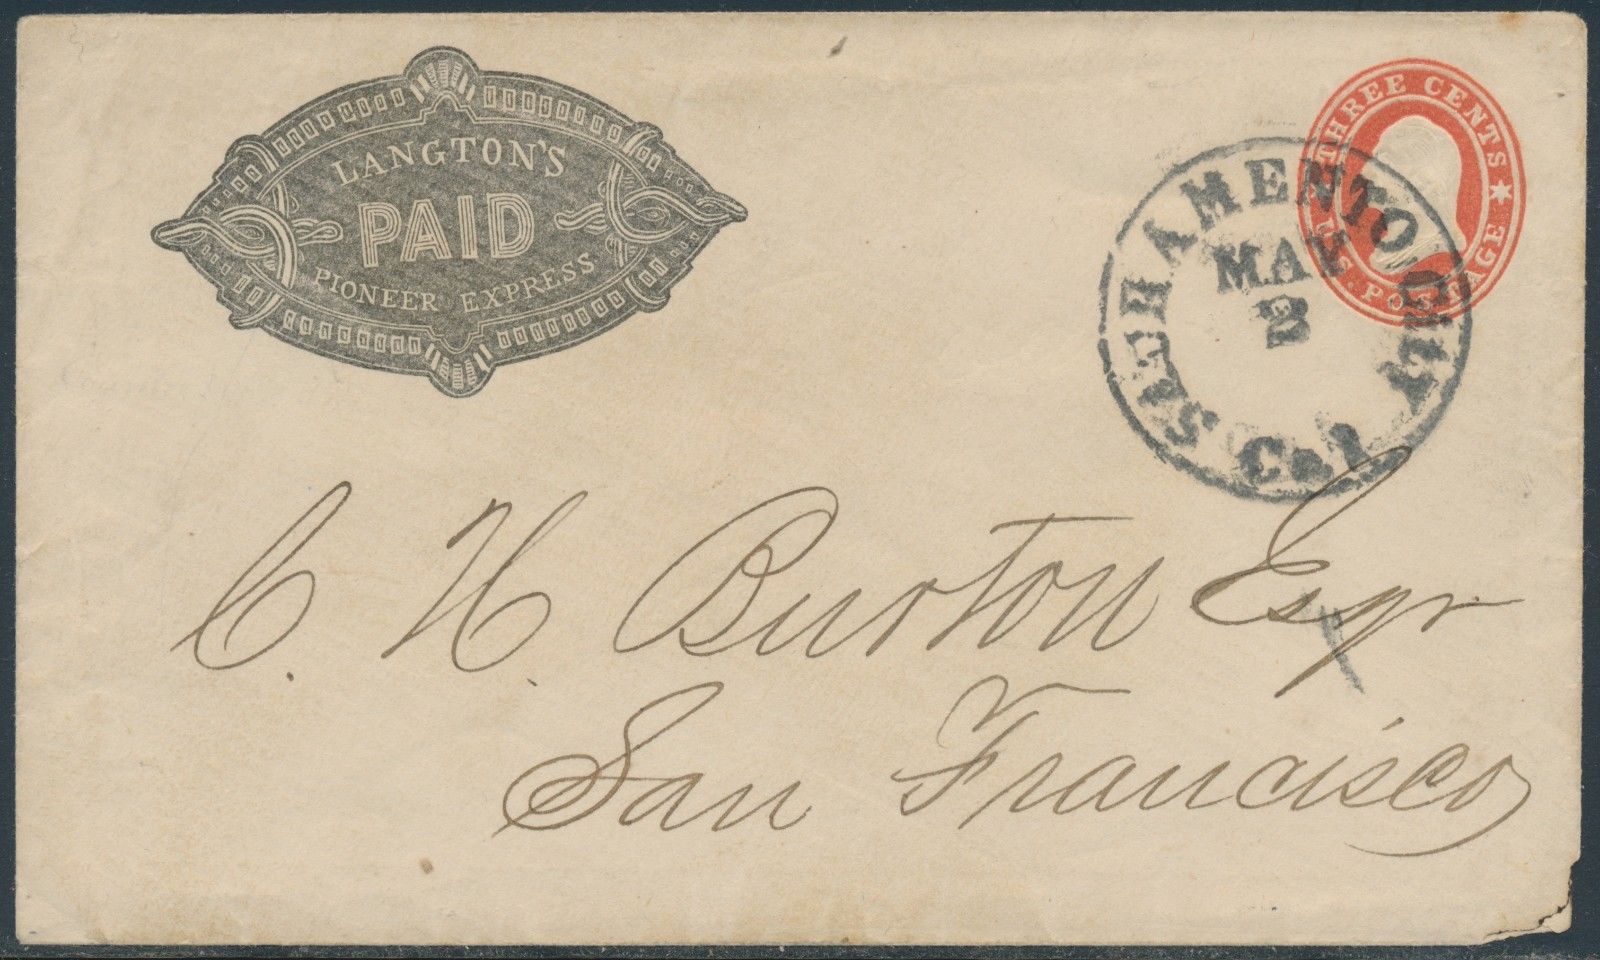 LANGTON'S
PAID
PIONEER EXPRESS
THREE CENTS
U.S. POSTAGE
SACRAMENTO CITY
MAY
2
Cal.
C. H. Burton Esqr
San Francisco